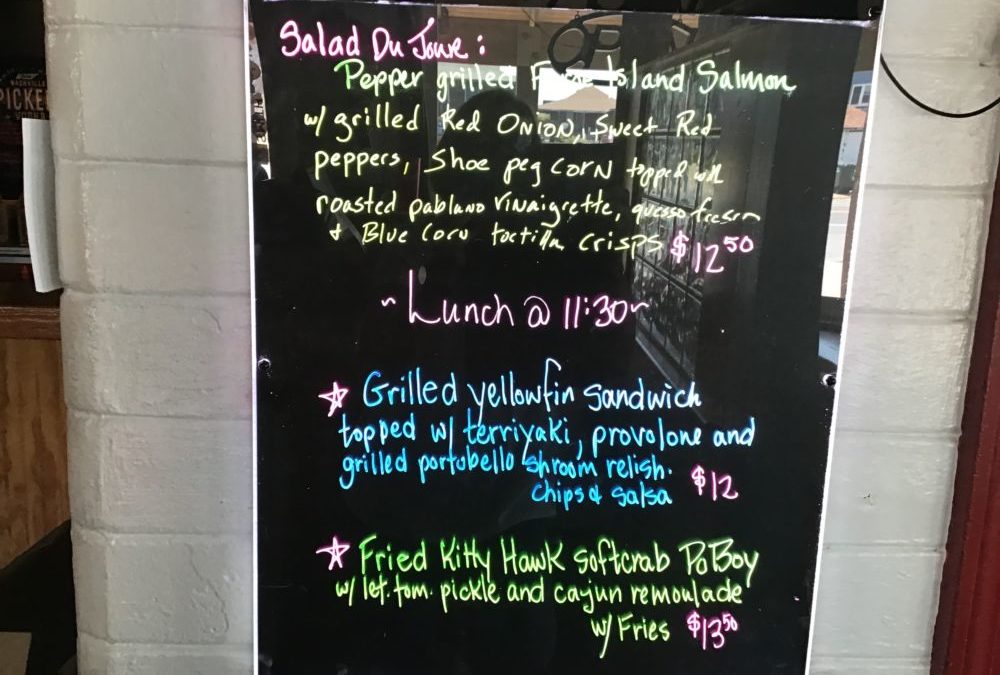 OPEN
NASHVILLE
PICKE
Salad Du Joure:
Pepper grilled Faroe Island Salmon
w/ grilled Red ONION, Sweet Red
peppers, Shoe peg CORN topped with
roasted pablano vinaigrette, quesso fresco
+ Blue Corn tortilla crisps $12.50
~Lunch @ 11:30~
☆ Grilled yellowfin sandwich
topped w/ terriyaki, provolone and
grilled portobello shroom relish.
chips & salsa $12
☆ Fried Kitty Hawk softcrab PoBoy
w/ let. tom. pickle and cajun remoulade
w/ Fries $13.50